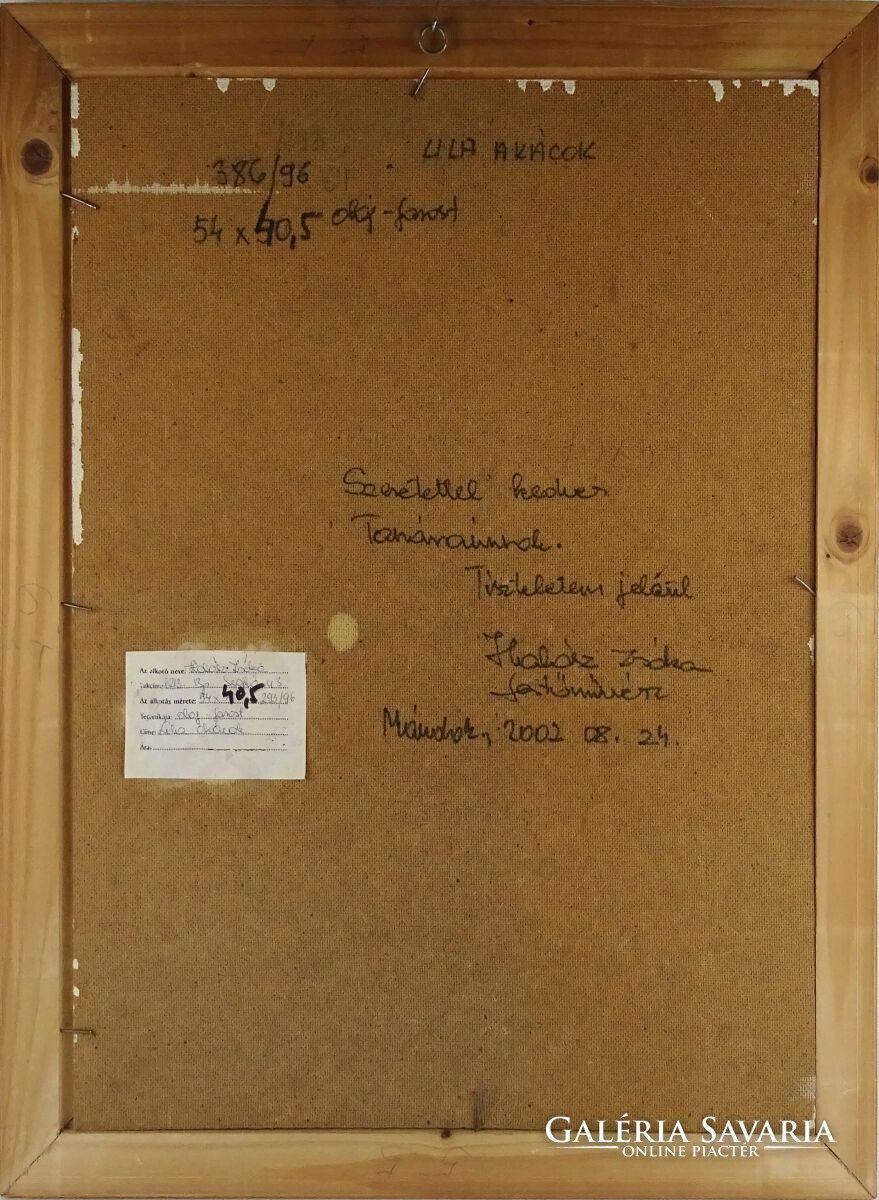 LILA AKÁCOK
386/96
54 x 40,5 olaj-farost
Szeretettel kedves
Tanáraimnak.
Tiszteletem jeléül
Halász Zsóka
festőművész
Mándok, 2002 08. 24.
Az alkotó neve: Halász Zsóka
Lakcíme: Bp
Az alkotás mérete: 54 x 40,5 293/96
Technikája: olaj farost
Címe: Lila Akácok
Ára:
GALÉRIA SAVARIA
ONLINE PIACTÉR